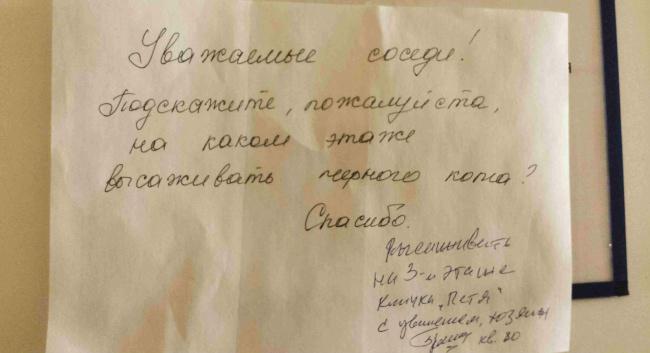 Уважаемые соседи!
Подскажите, пожалуйста,
на каком этаже
высаживать черного кота?
Спасибо.
Высаживать
на 3-м этаже
кличка „Петя"
с уважением, хозяин
кв. 80